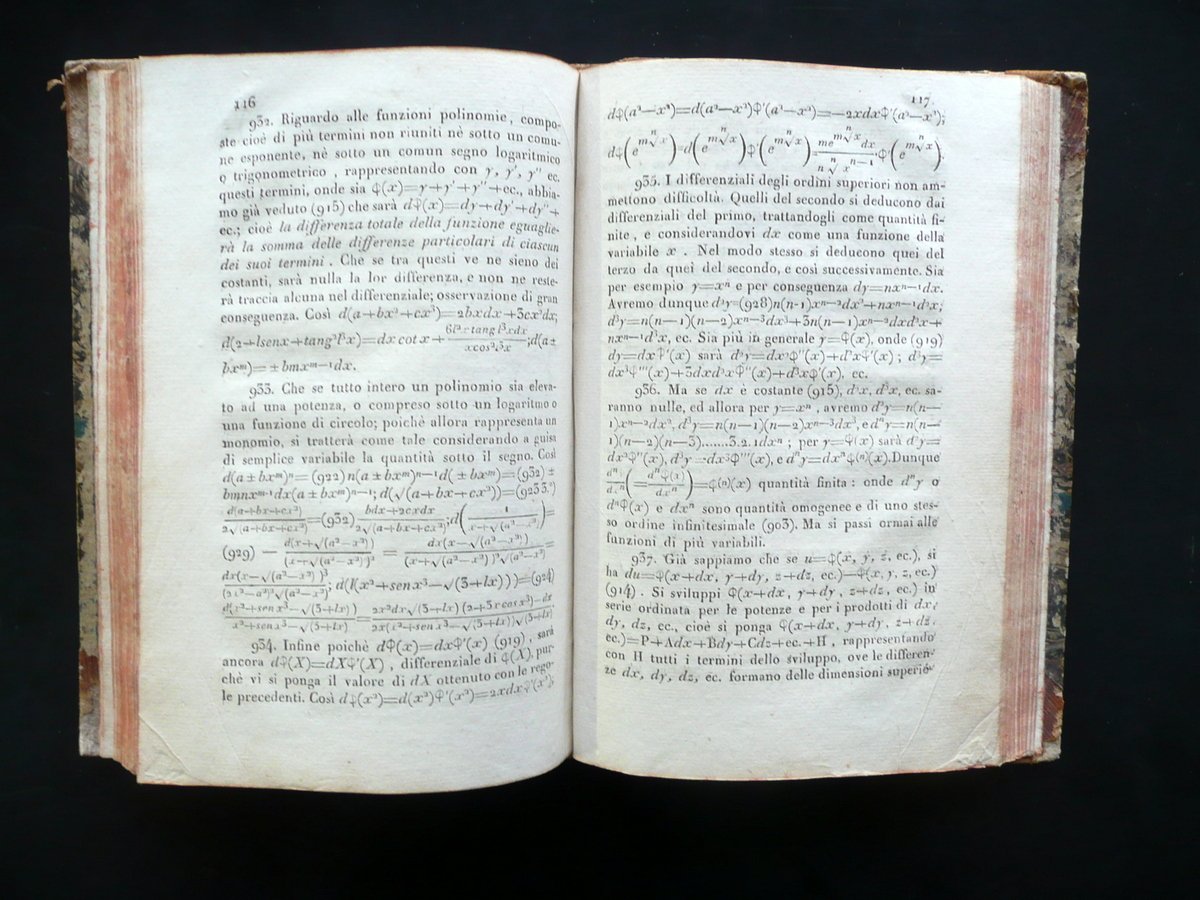 116
932. Riguardo alle funzioni polinomie, compo-
ste cioè di più termini non riuniti nè sotto un comu-
ne esponente, nè sotto un comun segno logaritmico
o trigonometrico, rappresentando con y, y', y'' ec.
questi termini, onde sia φ(x)=y+y'+y''+ec., abbia-
mo già veduto (915) che sarà dφ(x)=dy+dy'+dy''+
ec.; cioè la differenza totale della funzione eguaglie-
rà la somma delle differenze particolari di ciascun
dei suoi termini. Che se tra questi ve ne sieno dei
costanti, sarà nulla la lor differenza, e non ne reste-
rà traccia alcuna nel differenziale; osservazione di gran
conseguenza. Così d(a+bx²+cx³)=2bxdx+3cx²dx;
d(2+lsenx+tang²l³x)=dx cot x+
;d(a±
bxᵐ)=±bmxᵐ⁻¹dx.
933. Che se tutto intero un polinomio sia eleva-
to ad una potenza, o compreso sotto un logaritmo o
una funzione di circolo; poichè allora rappresenta un
monomio, si tratterà come tale considerando a guisa
di semplice variabile la quantità sotto il segno. Così
d(a±bxᵐ)ⁿ=(922)n(a±bxᵐ)ⁿ⁻¹d(±bxᵐ)=(932)±
bmnxᵐ⁻¹dx(a±bxᵐ)ⁿ⁻¹; d(√(a+bx+cx²))=(923
d(a+bx+cx²)/2√(a+bx+cx²)=(932) bdx+2cxdx/2√(a+bx+cx²);d(1/x+√(a²-x²))=
(929) — d(x+√(a²-x²))/(x+√(a²-x²))² = dx(x-√(a²-x²))/(x+√(a²-x²))²√(a²-x²)=
; d(l(x²+senx³-√(3+lx)))=(924)
d(x²+senx³-√(3+lx))/x²+senx³-√(3+lx)=
934. Infine poichè dφ(x)=dxφ'(x) (919), sarà
ancora dφ(X)=dXφ'(X), differenziale di φ(X), pur-
chè vi si ponga il valore di dX ottenuto con le rego-
le precedenti. Così dφ(x²)=d(x²)φ'(x²)=2xdxφ'(x²),
117
dφ(a²—x²)=d(a²—x²)φ'(a²—x²)=—2xdxφ'(a²—x²);
dφ(e^{m ⁿ√x})=d(e^{m ⁿ√x})φ'(e^{m ⁿ√x})=me^{m ⁿ√x}dx/n ⁿ√xⁿ⁻¹ φ'(e^{m ⁿ√x}).
935. I differenziali degli ordini superiori non am-
mettono difficoltà. Quelli del secondo si deducono dai
differenziali del primo, trattandogli come quantità fi-
nite, e considerandovi dx come una funzione della
variabile x. Nel modo stesso si deducono quei del
terzo da quei del secondo, e così successivamente. Sia
per esempio y=xⁿ e per conseguenza dy=nxⁿ⁻¹dx.
Avremo dunque d²y=(928)n(n-1)xⁿ⁻²dx²+nxⁿ⁻¹d²x;
d³y=n(n—1)(n—2)xⁿ⁻³dx³+3n(n—1)xⁿ⁻²dxd²x+
nxⁿ⁻¹d³x, ec. Sia più in generale y=φ(x), onde (919)
dy=dxφ'(x) sarà d²y=dx²φ''(x)+d²xφ'(x); d³y=
dx³φ'''(x)+3dxd²xφ''(x)+d³xφ'(x), ec.
936. Ma se dx è costante (915), d²x, d³x, ec. sa-
ranno nulle, ed allora per y=xⁿ, avremo d²y=n(n—
1)xⁿ⁻²dx², d³y=n(n—1)(n—2)xⁿ⁻³dx³, e dⁿy=n(n—
1)(n—2)(n—3).......3.2.1dxⁿ; per y=φ(x) sarà d²y=
dx²φ''(x), d³y=dx³φ'''(x), e dⁿy=dxⁿφ⁽ⁿ⁾(x).Dunque
dⁿy/dxⁿ(=dⁿφ(x)/dxⁿ)=φ⁽ⁿ⁾(x) quantità finita: onde dⁿy o
dⁿφ(x) e dxⁿ sono quantità omogenee e di uno stes-
so ordine infinitesimale (903). Ma si passi ormai alle
funzioni di più variabili.
937. Già sappiamo che se u=φ(x, y, z, ec.), si
ha du=φ(x+dx, y+dy, z+dz, ec.)—φ(x, y, z, ec.)
(914). Si sviluppi φ(x+dx, y+dy, z+dz, ec.) in
serie ordinata per le potenze e per i prodotti di dx,
dy, dz, ec., cioè si ponga φ(x+dx, y+dy, z+dz,
ec.)=P+Adx+Bdy+Cdz+ec.+H, rappresentando
con H tutti i termini dello sviluppo, ove le differen-
ze dx, dy, dz, ec. formano delle dimensioni superio-